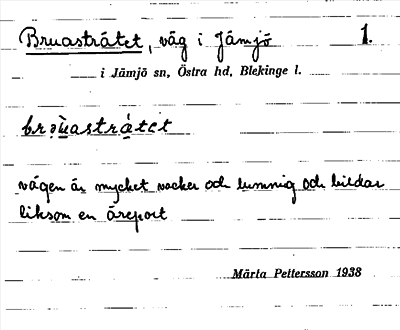 Bruasträtet, väg i Jämjö 1.
i Jämjö sn, Östra hd, Blekinge l.
vägen är mycket vacker och lummig och bildar
liksom en äreport
Märta Pettersson 1938